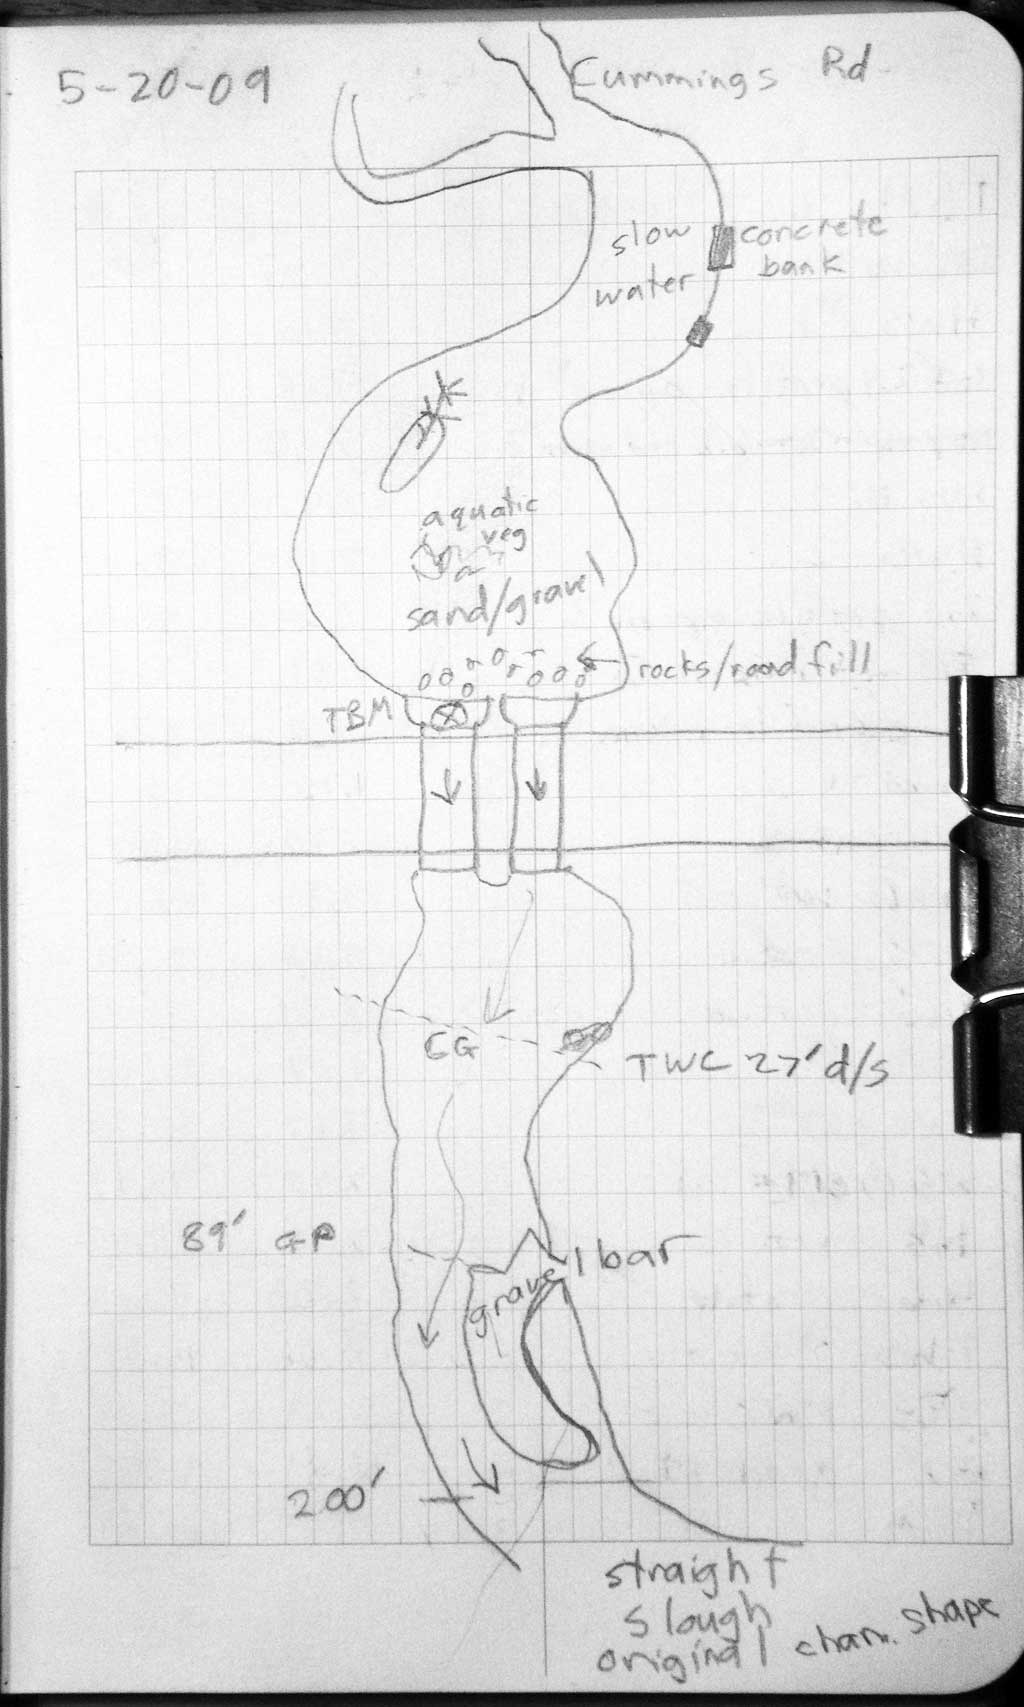 5-20-09
Cummings Rd
slow
water
concrete
bank
aquatic
veg
sand/gravel
rocks/road fill
TBM
CG
TWC 27' d/s
89' GP
gravel bar
200'
straight
slough
original chan. shape